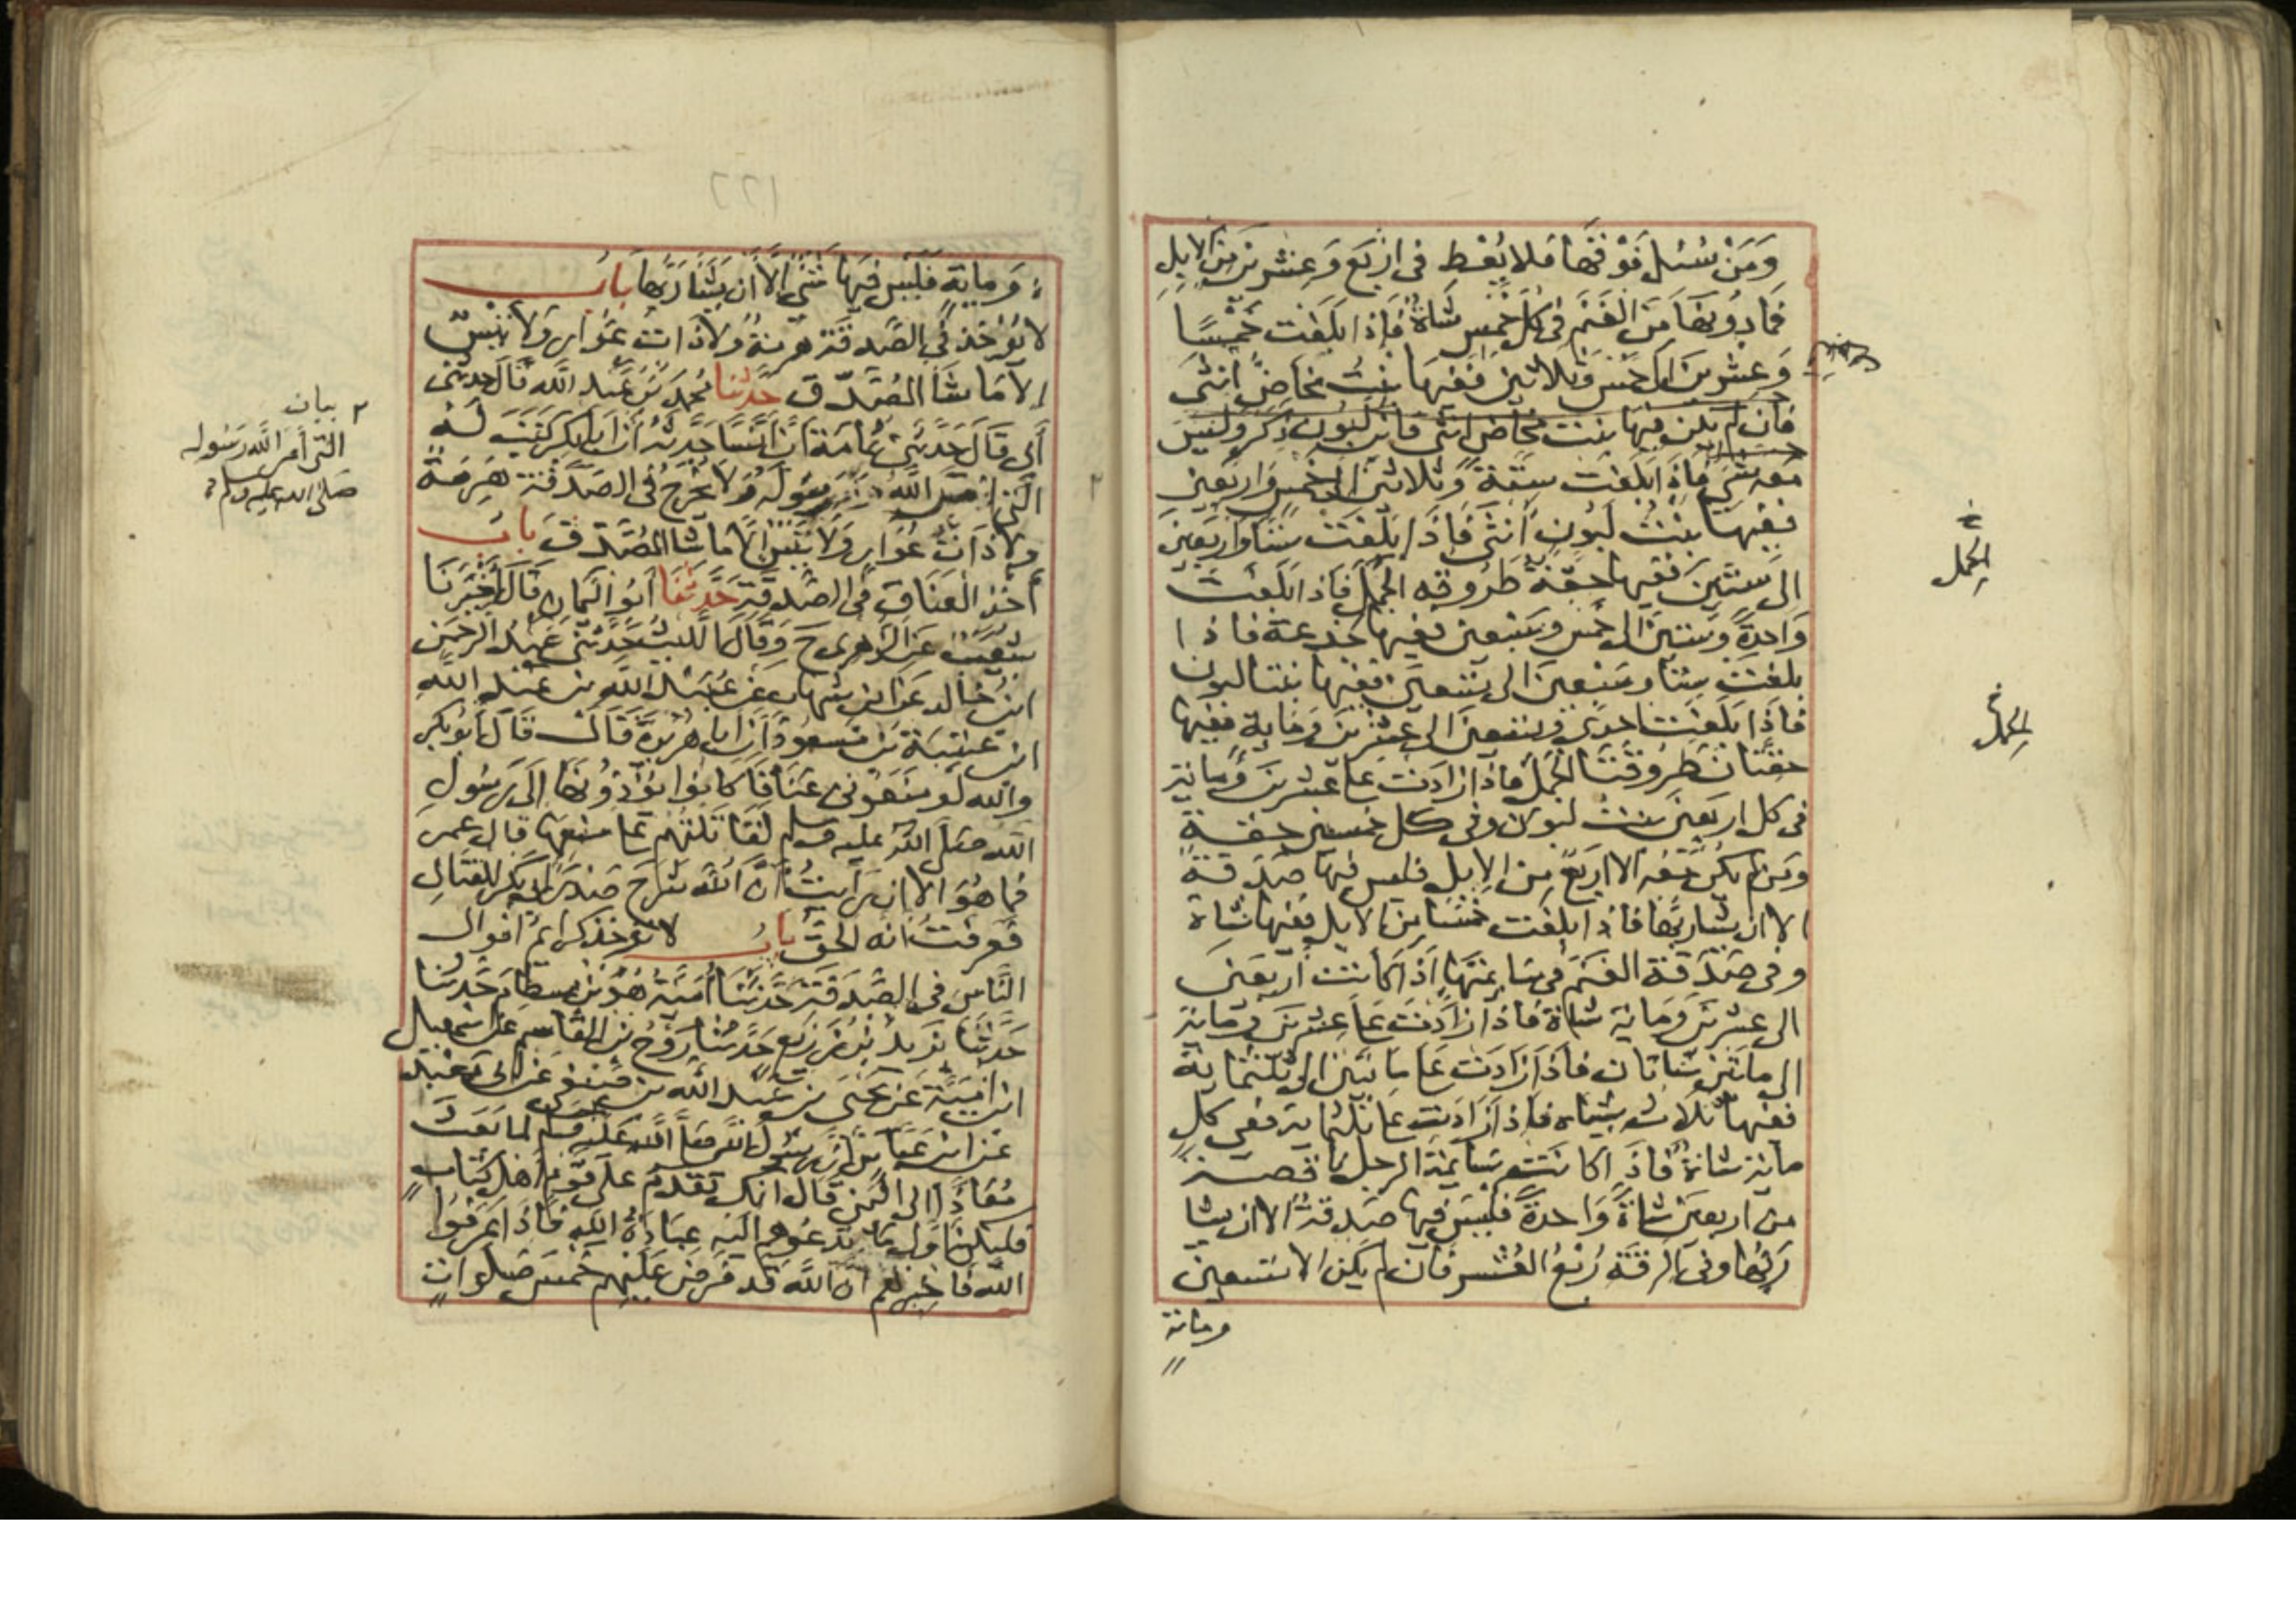 وَمَنْ سُئل فَوْقَهَا فَلا يُعْطِ فى اَرْبَع وَعِشرِينَ مِنَ الابِلِ
فَمَا دُونَهَا مِنَ الغَنَمِ فى كُلِّ خَمْسٍ شاةٌ فَاِذا بَلَغَت خَمْسًا
وَعِشرِينَ الى خَمْسٍ وَثلاثينَ فَفِيهَا بِنْتُ مَخَاضٍ اُنثىَ
فَان لم يكن فيها بنت مخاض انثى فابن لَبُون ذكَر وليسَ
معه شئ فَاِذَا بَلَغَت سِتَّةً وَثلاثينَ الى خمس وَاَربَعينَ
فَفِيهَا بِنْتُ لَبُونٍ اُنثَى فَاِذَا بَلَغَت سِتًّا وَاَربَعِينَ
الى سِتّينَ فَفِيهَا حِقَّةٌ طَرُوقه الجمل فَاِذا بَلَغَت
وَاحِدَةً وَسِتينَ الى خَمسٍ وَسَبعِينَ ففيها جذعة فاذا
بلغت سِتّا وسَبْعينَ الى تِسْعينَ فَفِيْهَا بنتا لبون
فَاِذَا بَلَغَت اِحدى وتسعينَ الى عِشرينَ وَمَاية ففيها
حقتان طَرُوقَتَا الجمل فَاذَا زادَت عَلى عِشرينَ وَماية
فى كل اربعينَ بنتُ لبون وفى كل خمسين حقةٌ
ومن لم يكن مَعَه الا اَربَعٌ مِنَ الاِبِلِ فليس فيها صَدقةٌ
الا ان يشا ربُّها فاذا بلغت خمْسًا من الابل ففيها شاة
وفى صَدَقة الغَنَم فى سَايمتها اذا كانت اَربَعينَ
الى عشرينَ وَماية شاة فَاذا زَادَت عَلى عشرينَ وماية
الى مايتين شاتان فاذا زَادَت عَلى مايتين الى ثلثماية
ففيها ثلاث شياه فاذا زَادَت عَلى ثلثماية ففى كل
ماية شاةٌ فَاذَا كانت سَايمة الرجل ناقصة
من اربعينَ شاةً وَاحدةً فليسَ فيها صَدقة الا ان يشا
رَبُّها وفى الرقة رُبْعُ العُشر فَان لم يكن الا تسعين
وماية
الجمل
الجمل
وَماية فلَيسَ فيهَا شَئ اِلاَّ اَن يشَا رَبُّها بابُ
لا يُؤخَذ فى الصَّدَقة هرمة ولا ذات عَوَار وَلا تَيْس
الا مَا شَا المُصَّدّق حَدثنا محمد بن عَبد الله قال حدثنى
اَبى قَالَ حَدَّثنى ثمامَة اَنَّ اَنَسًا حَدَّثهُ اَن اَبا بكر كَتَبَ لَهُ
التى امَرَ اللهُ رَسُولَهُ وَلاَ يخرَجُ فى الصَدَقة هَرِمَةٌ
ولا ذَاتُ عَوَارٍ وَلا تَيْس اِلاَّ مَا شا المُصَّدّق بابُ
اَخذ العَنَاق فى الصَدَقة حَدَّثنَا اَبُو اليَمانِ قال اَخبَرَنَا
شعَيبٌ عَن الزهرى ح وَقَالَ الليثُ حَدَّثنى عَبدُ الرحمن
ابن خَالد عَن ابن شهَاب عَن عُبَيدِ اللهِ بن عَبْدِ اللهِ
ابن عتبَة بن مَسعُودٍ اَنَّ اَبا هرَيرَةَ قَالَ قَالَ ابُو بكر
والله لَو مَنَعُونى عَنَاقًا كانوُا يؤَدّوُنهَا اِلَى رَسُولِ
الله صَلى الله عليه وسلم لَقَاتَلتهُم عَلى منعِها قال عمر
فما هُوَ الا ان رَاَيتُ اَنَّ اللهَ شَرَحَ صَدرَ اَبى بَكرٍ للقتَالِ
فعَرَفتُ اَنهُ الحَقّ بابُ لا تؤخذ كرَايم اَموال
النَّاس فى الصَّدَقة حَدثنَا اُمَيَّةُ هُوَ بن بسطام حَدثنا
حَدثنا يزيد بن زرَيع حَدثنا رَوْحُ بن القَاسِم عَن اسمعيل
ابن اُمَيَّة عَن يحيَى بن عَبد الله بن صَيفى عَن ابى مَعْبد
عَن ابن عَبَّاس اَن رَسُولَ الله صَلى الله عَليه وَسلم لما بَعَثَ
مُعَاذًا الى اليَمَن قال انك تقدَمُ عَلى قَومٍ اَهل كتَاب
فليكن اَولَ مَا تدعُوهم اليه عبَادَةُ اللهِ فَاِذَا عَرَفوا
اللّه فاخبرهم اَن اللهَ قد فَرَضَ عَلَيهِم خَمسَ صَلَوَات
٢ بيان
التى اَمَرَ اللهُ رَسُوله
صَلى الله عليه وسلم